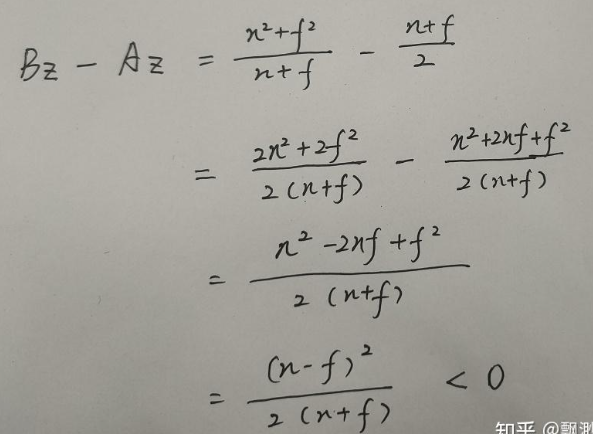 Bz - Az = \frac{n²+f²}{n+f} - \frac{n+f}{2}
= \frac{2n²+2f²}{2(n+f)} - \frac{n²+2nf+f²}{2(n+f)}
= \frac{n²-2nf+f²}{2(n+f)}
= \frac{(n-f)²}{2(n+f)} < 0
知乎 @飘渺